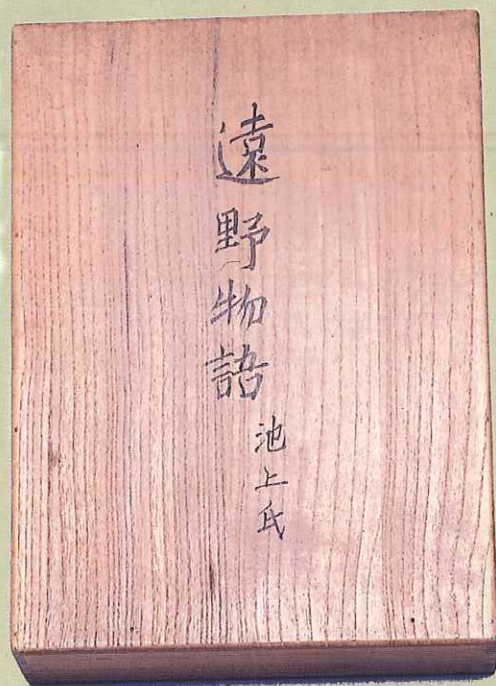 遠野物語
池上氏